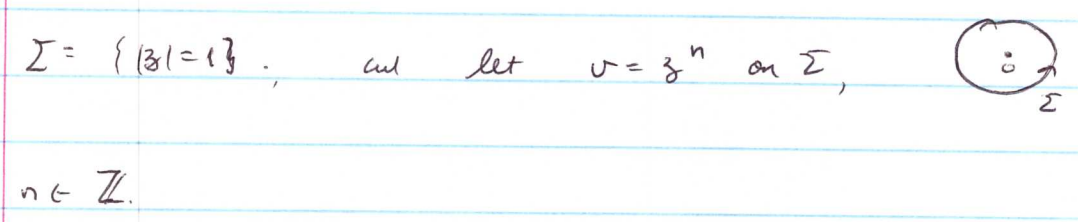 Σ = { |z| = 1 } ; and let v = z^n on Σ,
0
Σ
n ∈ ℤ.